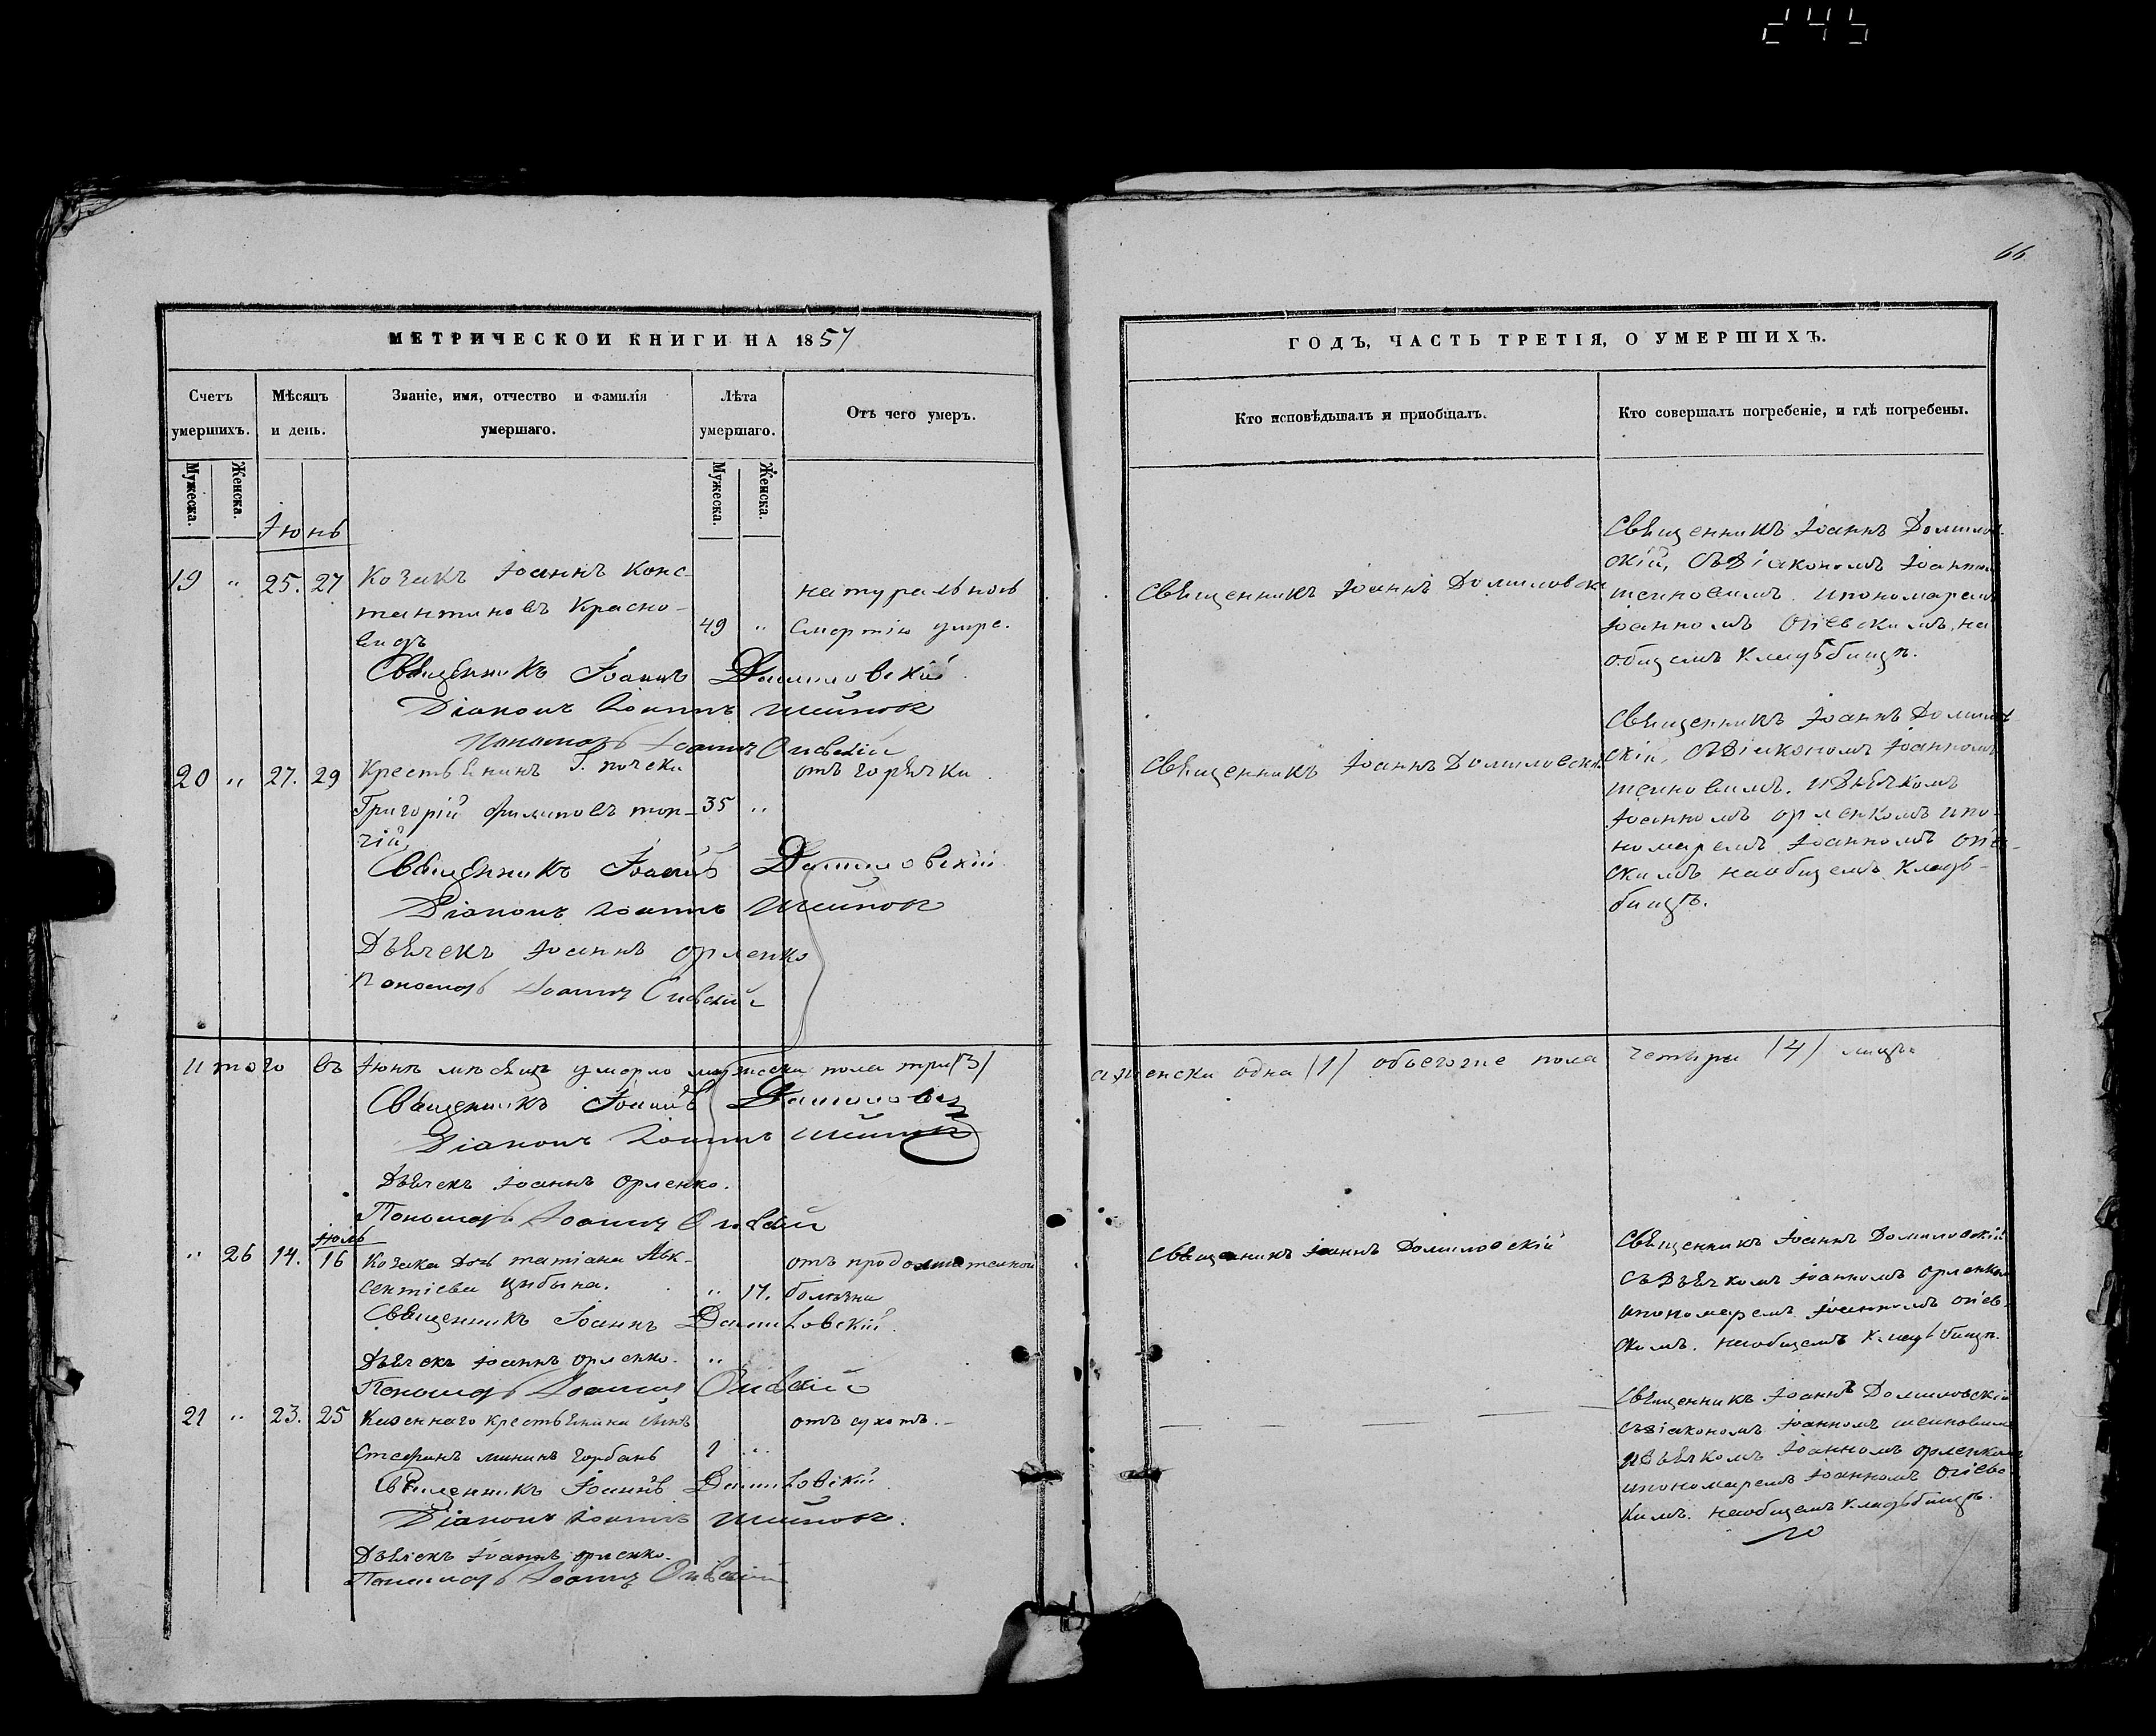 245
66
МЕТРИЧЕСКОЙ КНИГИ НА 1857
Счетъ умершихъ.
Мѣсяцъ и день.
Званіе, имя, отчество и фамилія умершаго.
Лѣта умершаго.
Отъ чего умеръ.
Мужеска.
Женска.
Мужеска.
Женска.
Іюнь
19 " 25. 27 Козакъ Іоаннъ Конс-
тантиновъ Красно-
видъ
49 "
натуральною
смертію умре.
Священникъ Іоаннъ Домиловскій
Діаконъ Іоаннъ
Пономарь Іоаннъ Огіевскій
20 " 27. 29 Крестьянинъ Г.
Григорій Филиповъ тор-
чій,
35 "
отъ горячки
Священникъ Іоаннъ Домиловскій
Діаконъ Іоаннъ
Дьячекъ Іоаннъ Орленко
Пономарь Іоаннъ Огіевскій
Итого въ Іюнѣ мѣсяцѣ умерло мужеска пола три (3)
Священникъ Іоаннъ
Діаконъ Іоаннъ
Дьячекъ Іоаннъ Орленко.
Пономарь Іоаннъ Огіевскій
Іюль
" 26 14. 16 Козака дочь татіана Авк-
сентіева Цибына.
" 17.
отъ продолжительной
болѣзни
Священникъ Іоаннъ Домиловскій
Дьячекъ Іоаннъ Орленко.
Пономарь Іоаннъ Огіевскій
21 " 23. 25 Казеннаго крестьянина сынъ
Стефанъ мининъ Горбань
1 "
отъ сухотъ.
Священникъ Іоаннъ Домиловскій
Діаконъ Іоаннъ
Дьячекъ Іоаннъ Орленко.
Пономарь Іоаннъ Огіевскій
ГОДЪ, ЧАСТЬ ТРЕТІЯ, О УМЕРШИХЪ.
Кто исповѣдывалъ и приобщалъ.
Кто совершалъ погребеніе, и гдѣ погребены.
Священникъ Іоаннъ Домиловскі
Священникъ Іоаннъ Домилов-
скій, съ Діакономъ Іоанномъ
и пономаремъ
Іоанномъ Огіевскимъ, на
общемъ кладбищѣ.
Священникъ Іоаннъ Домиловскі
Священникъ Іоаннъ Домилов
скій, съ Діакономъ Іоанномъ
и Дьячкомъ
Іоанномъ Орленкомъ и по-
номаремъ Іоанномъ Огіев-
скимъ на общемъ кладъ-
бищѣ.
а женска одна (1) обоего же пола четыри (4) лица
Священникъ Іоаннъ Домиловскій
Священникъ Іоаннъ Домиловскій
съ Дьячкомъ Іоанномъ Орленком
и пономаремъ Іоанномъ Огіев-
скимъ. на общемъ кладьбищѣ.
Священникъ Іоаннъ Домиловскій
съ Діакономъ Іоанномъ
и Дьячкомъ Іоанномъ Орленкомъ
и пономаремъ Іоанномъ Огіевс
кимъ. на общемъ кладьбищѣ.